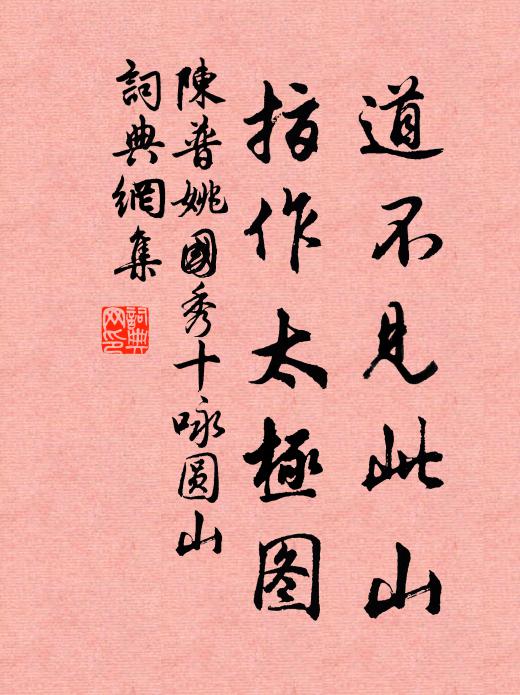 道不見此山
指作太極图
陳普姚國秀十咏圓山
詞典網集
詞典网印